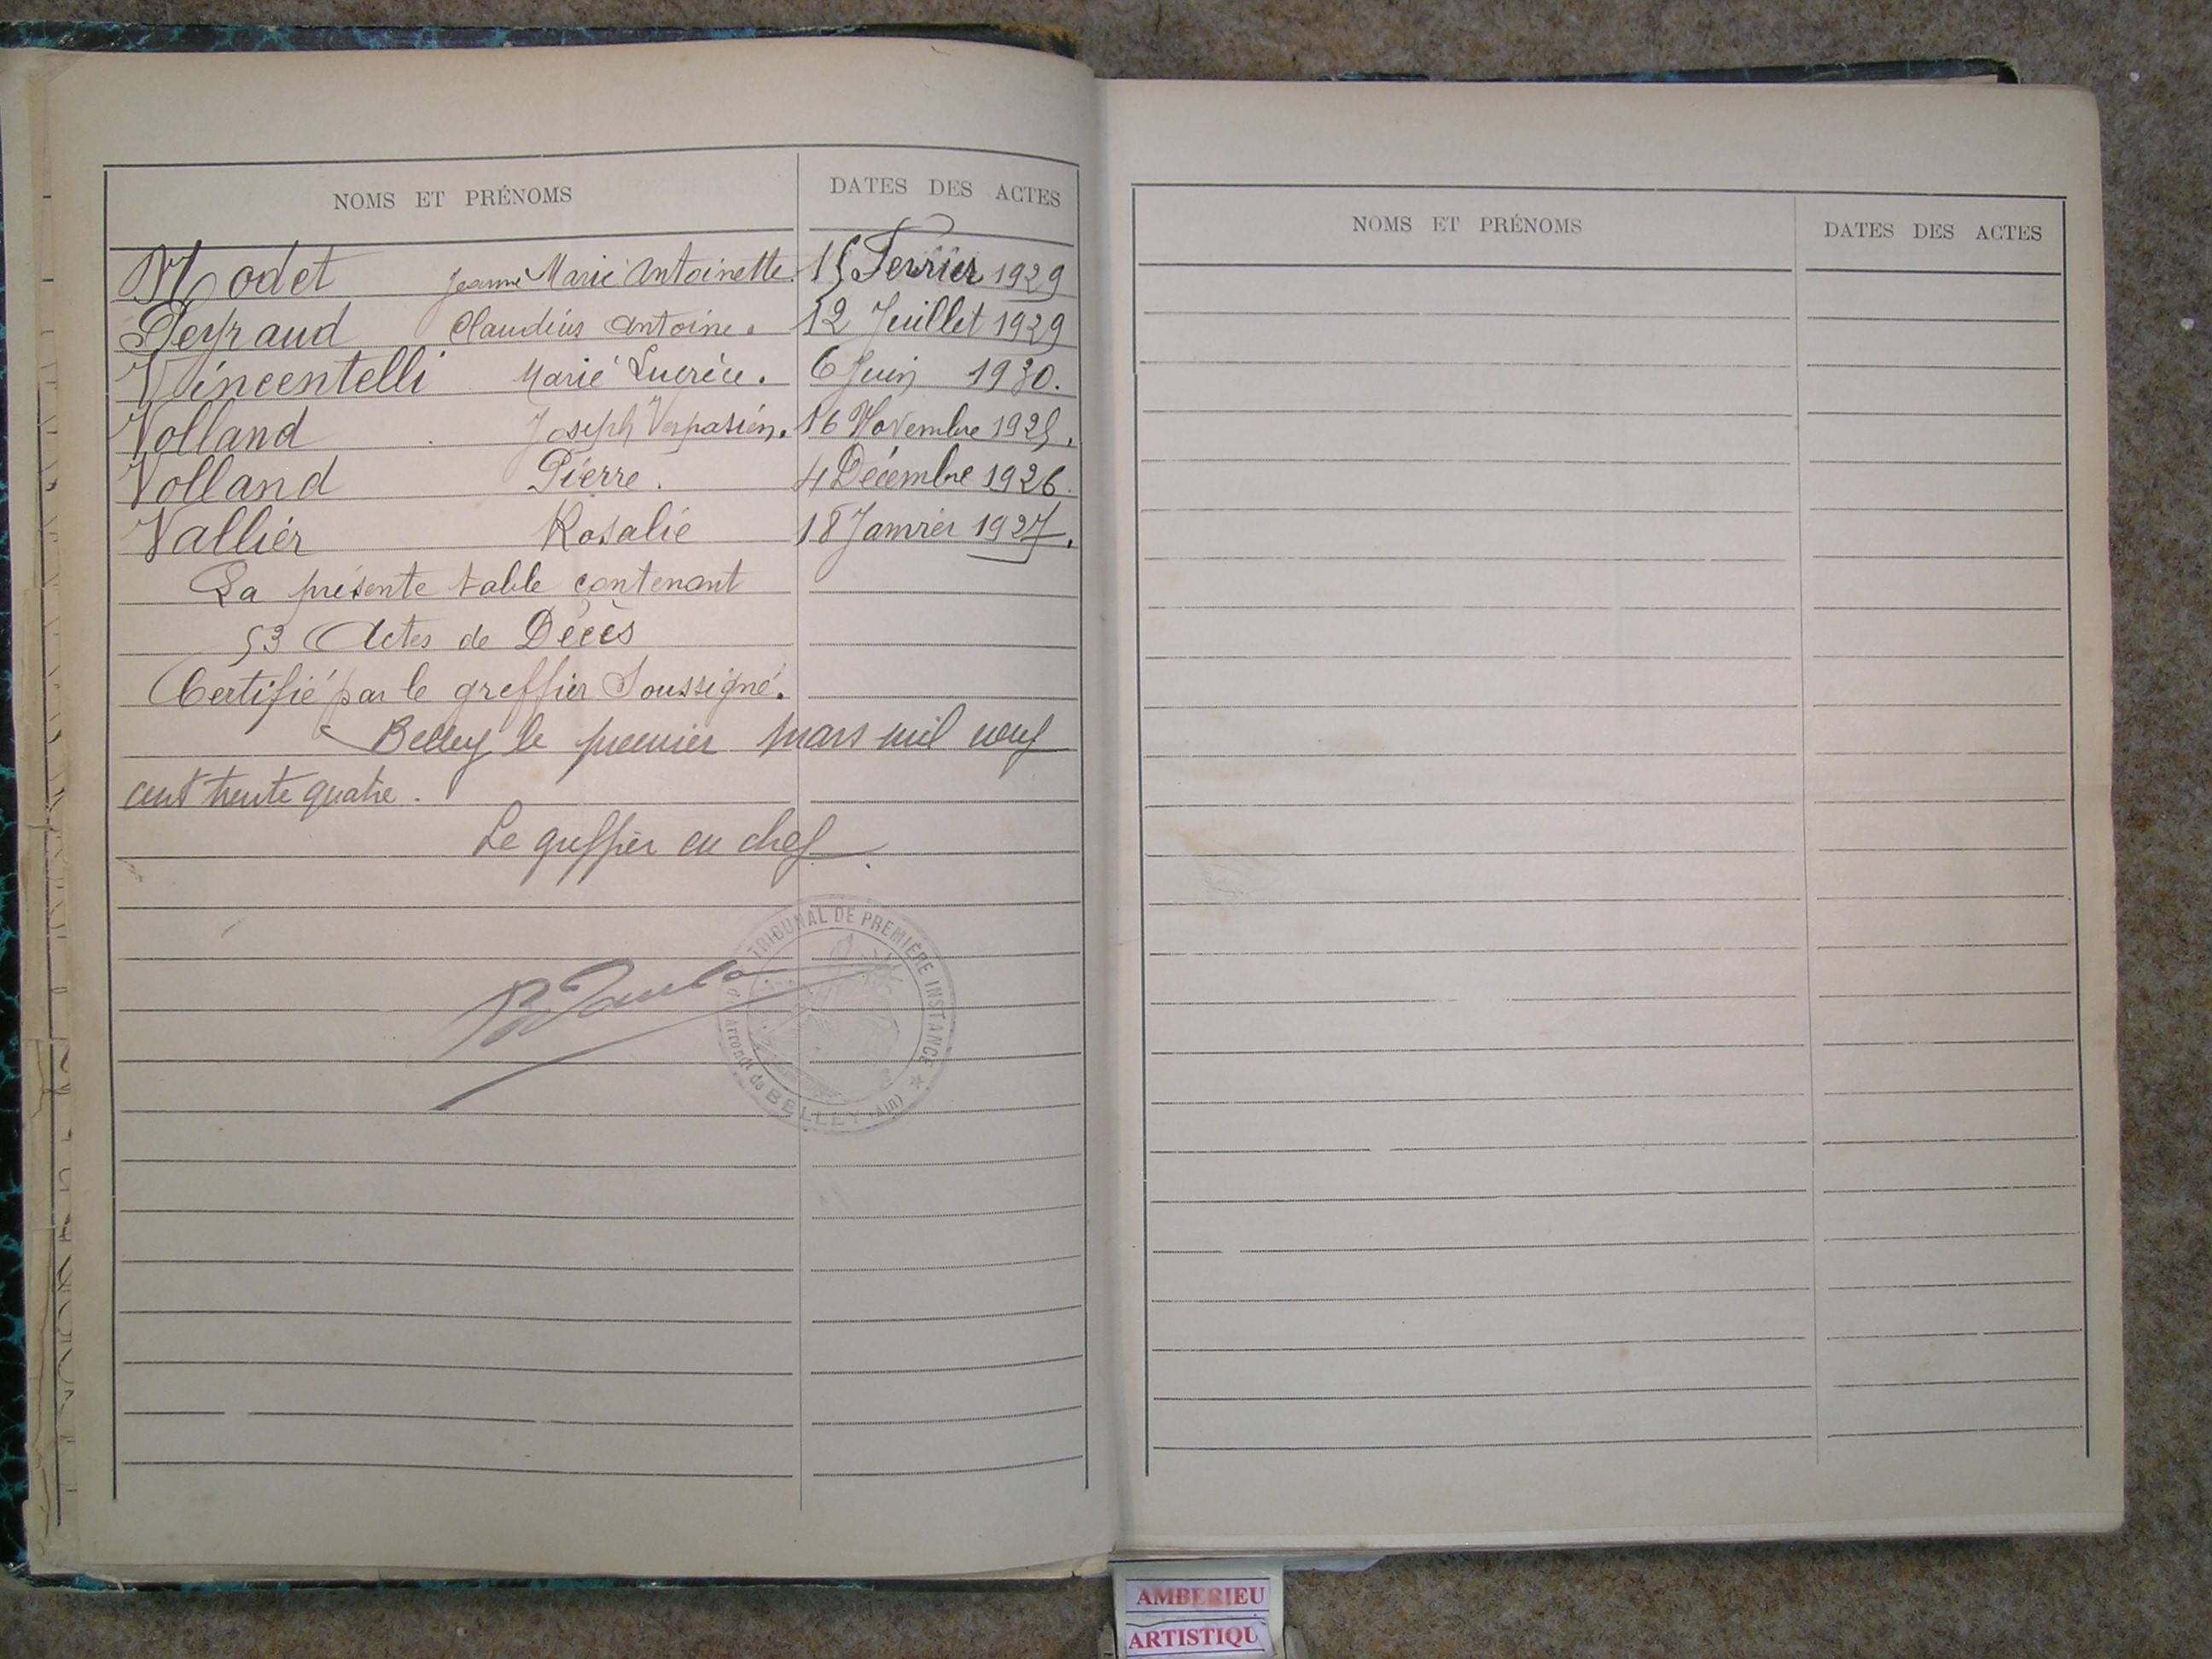 NOMS ET PRÉNOMS DATES DES ACTES
Modet Jeanne Marie Antoinette. 15 Fevrier 1929
Peyraud Claudius Antoine. 12 Juillet 1929
Vincentelli Marie Lucrèce. 6 Juin 1930.
Volland Joseph Vespasien. 16 Novembre 1925.
Volland Pierre. 4 Décembre 1926.
Vallier Rosalie 18 Janvier 1927.
La présente table contenant
53 Actes de Décès
Certifié par le greffier Soussigné.
Belley le premier mars mil neuf
cent trente quatre.
Le greffier en chef.
TRIBUNAL DE PREMIÈRE INSTANCE
de BELLEY (Ain)
NOMS ET PRÉNOMS DATES DES ACTES
AMBERIEU
ARTISTIQU